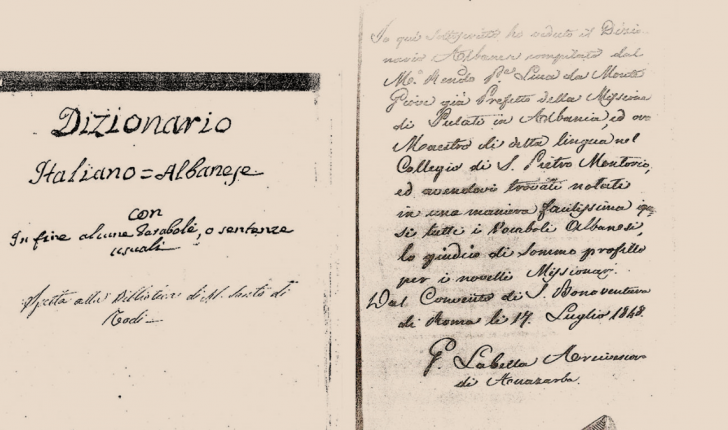 Dizionario
Italiano = Albanese
con
In fine alcune Parabole, o sentenze
usuali
alla di M. Santo di
Todi
Io qui sottoscritto ho veduto il Dizio-
nario Albanese compilato dal
M.º Rendo P.dre Luca da Monte
Giove già Prefetto della Missione
di Pulati in Albania, ed ora
Maestro di detta lingua nel
Collegio di S. Pietro Montorio,
ed avendovi trovati notati
in una maniera facilissima qua
si tutti i Vocaboli Albanesi,
lo giudico di sommo profitto
per i novelli Missionar.
Dal Convento di S. Bonaventura
di Roma li 17. Luglio 1848.
G. Labella Arcivescov
di